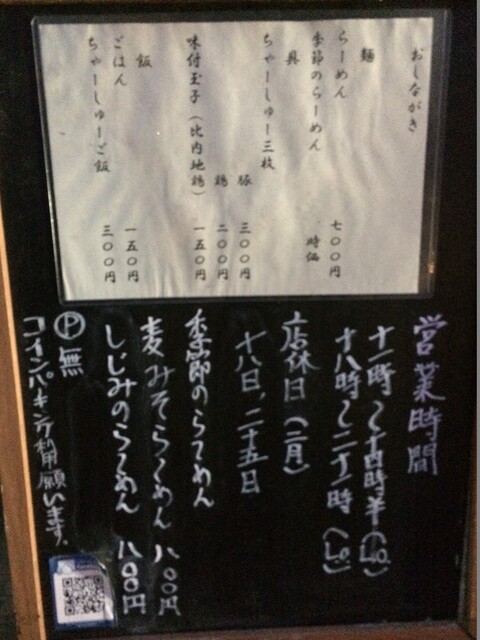 おしながき
麺
らーめん 七〇〇円
季節のらーめん 時価
具
ちゃーしゅー三枚
豚 三〇〇円
鶏 二〇〇円
味付玉子（比内地鶏） 一五〇円
飯
ごはん 一五〇円
ちゃーしゅーご飯 三〇〇円
営業時間
十一時〜十四時半（L.o.）
十八時〜二十一時（L.o.）
店休日（二月）
十八日、二十五日
季節のらーめん
麦みそらーめん 八〇〇円
しじみのらーめん 八〇〇円
Ⓟ無
コインパーキング利用願います。